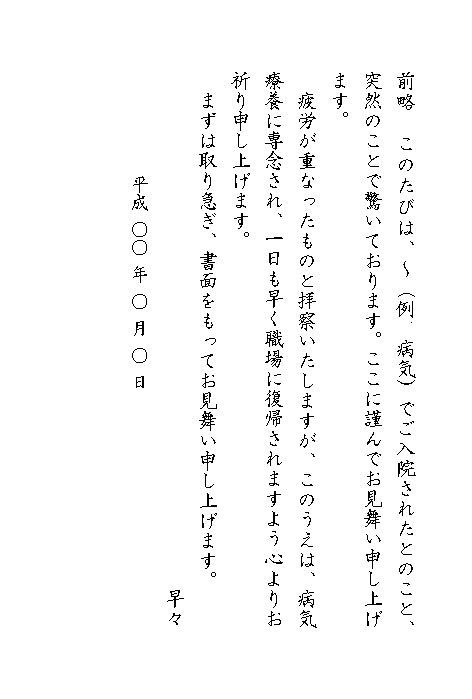 前略　このたびは、～（例、病気）でご入院されたとのこと、
突然のことで驚いております。ここに謹んでお見舞い申し上げ
ます。
　疲労が重なったものと拝察いたしますが、このうえは、病気
療養に専念され、一日も早く職場に復帰されますよう心よりお
祈り申し上げます。
　まずは取り急ぎ、書面をもってお見舞い申し上げます。
早々
平成　○○　年　○　月　○　日